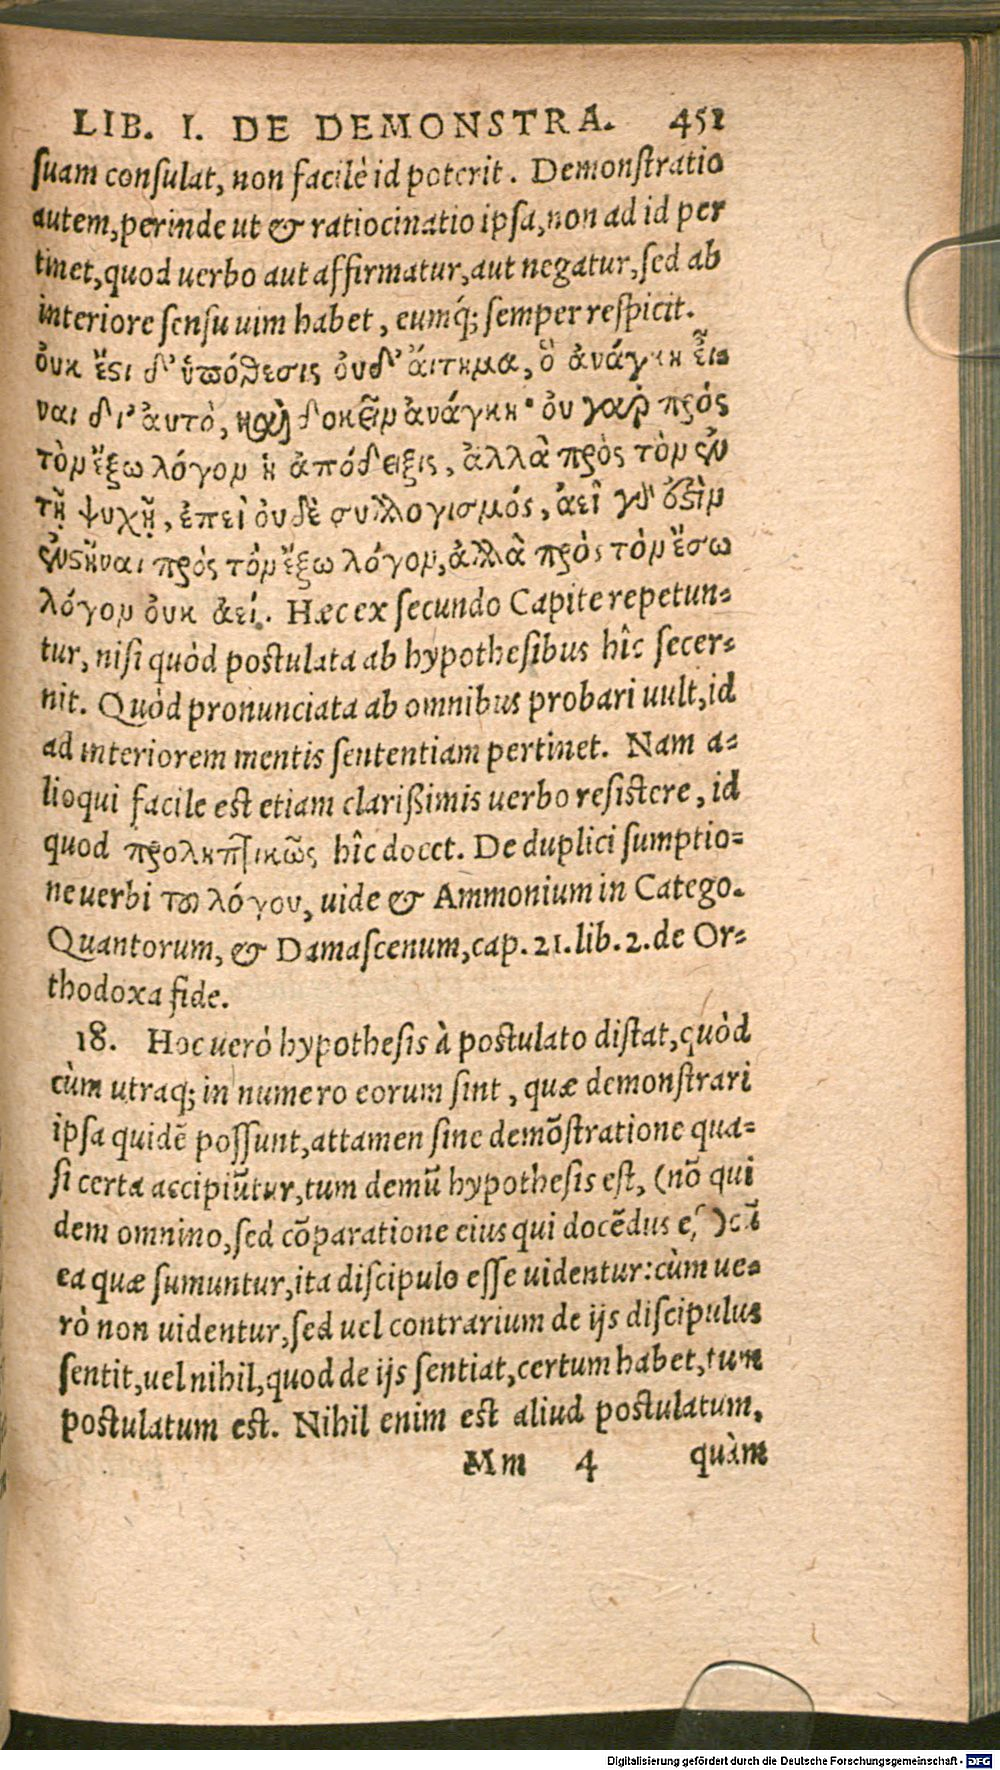 LIB. I. DE DEMONSTRA. 451
suam consulat, non facilè id poterit. Demonstratio
autem, perinde ut & ratiocinatio ipsa, non ad id per
tinet, quod uerbo aut affirmatur, aut negatur, sed ab
interiore sensu uim habet, eumq́; semper respicit.
ὀυκ ἔςι δ' ὑπόθεσις ὀυδ' ἄιτημα, ὃ ἀνάγκη εἶ-
ναι δι' ἀυτὸ, καὶ δοκεῖν ἀνάγκη· ὀυ γαρ πρός
τὸν ἔξω λόγον ἡ ἀπόδειξις, ἀλλὰ πρὸς τὸν ἐν
τῇ ψυχῇ, ἐπεὶ ὀυδὲ συλλογισμός, ἀεὶ γὰρ ὄςιν
ἐνςῆναι πρὸς τὸν ἔξω λόγον, ἀλλὰ πρὸς τὸν ἔσω
λόγον ὀυκ ἀεί. Hæc ex secundo Capite repetun-
tur, nisi quòd postulata ab hypothesibus hîc secer-
nit. Quòd pronunciata ab omnibus probari uult, id
ad interiorem mentis sententiam pertinet. Nam a-
lioqui facile est etiam clarißimis uerbo resistere, id
quod προληπτικῶς hîc docet. De duplici sumptio-
ne uerbi τοῦ λόγου, uide & Ammonium in Catego.
Quantorum, & Damascenum, cap. 21. lib. 2. de Or-
thodoxa fide.
18. Hoc ueró hypothesis à postulato distat, quòd
cùm utraq; in numero eorum sint, quæ demonstrari
ipsa quidẽ possunt, attamen sine demõstratione qua-
si certa accipiũtur, tum demũ hypothesis est, (nõ qui
dem omnino, sed cõparatione eius qui docẽdus es) cũ
ea quæ sumuntur, ita discipulo esse uidentur: cùm ue-
rò non uidentur, sed uel contrarium de ijs discipulus
sentit, uel nihil, quod de ijs sentiat, certum habet, tum
postulatum est. Nihil enim est aliud postulatum,
Mm 4 quàm
Digitalisierung gefördert durch die Deutsche Forschungsgemeinschaft - DFG